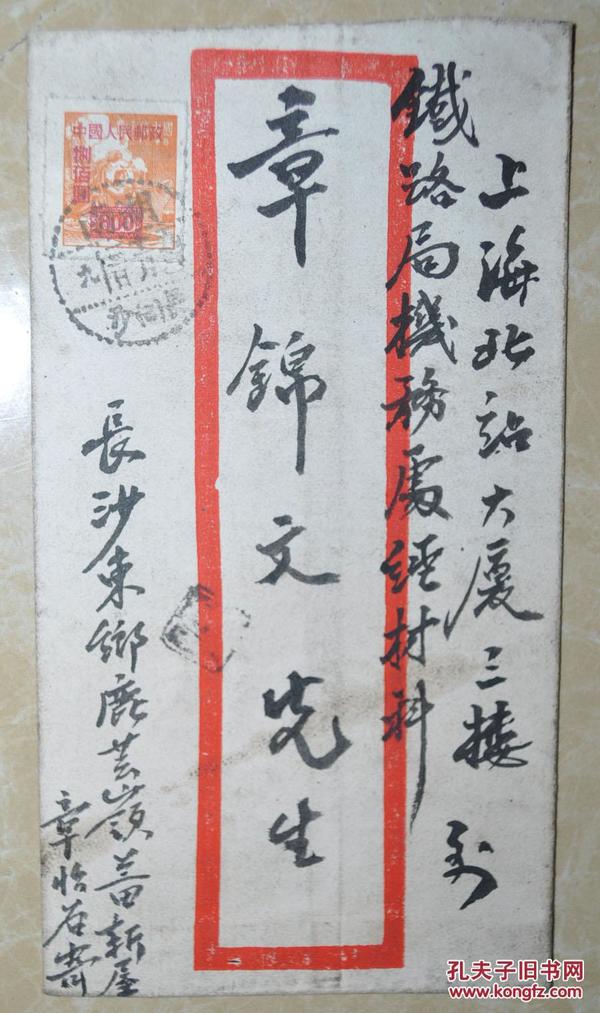 上海北站大廈三樓
鐵路局機務處經材科 到
章錦文先生
中國人民郵政
捌佰圓
800
長沙東鄉鹿芸嶺䓣田新屋
章怡石寄
孔夫子旧书网
www.kongfz.com